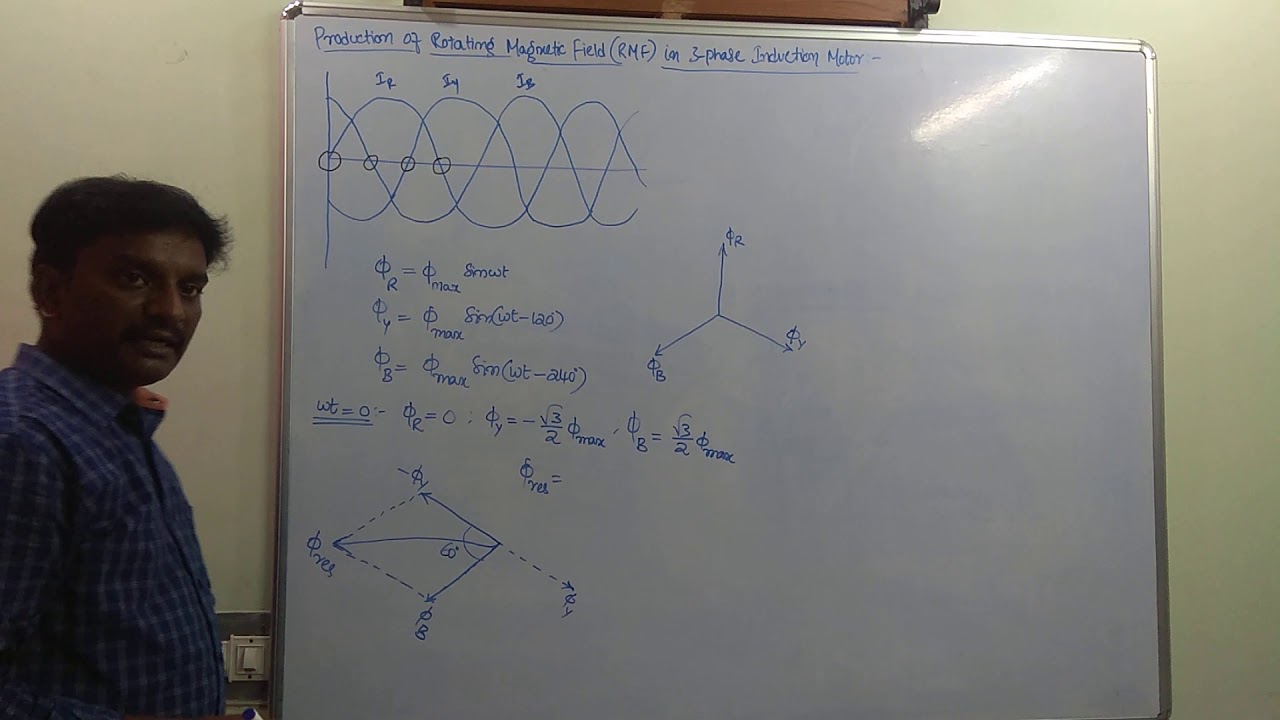 Production of Rotating Magnetic Field (RMF) in 3-phase Induction Motor :-
I_R I_Y I_B
ϕ_R
ϕ_R = ϕ_max Sinωt
ϕ_Y = ϕ_max Sin(ωt-120°)
ϕ_Y
ϕ_B
ϕ_B = ϕ_max Sin(ωt-240°)
ωt=0 :- ϕ_R = 0 ; ϕ_Y = -√3/2 ϕ_max , ϕ_B = √3/2 ϕ_max
-ϕ_Y
ϕ_res =
ϕ_res
60°
ϕ_Y
ϕ_B